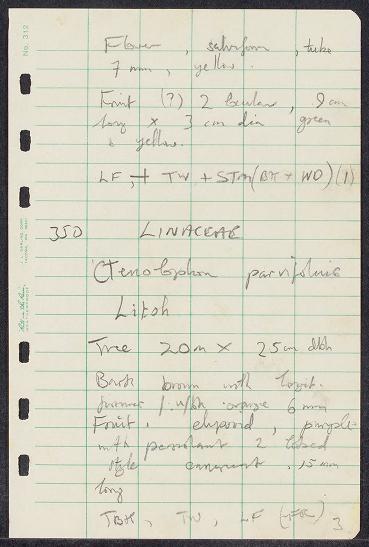 No. 312
Flower, salverform, tube
7 mm, yellow.
Fruit (?) 2 locular, 9 cm
long x 3 cm dia green
yellow.
LF, + TW + STM (BK + WD) (1)
350 LINACEAE
Ctenolophon parvifolius
Litoh
Tree 20m x 25 cm dbh
Bark brown with longit.
6 mm
Fruit, ellipsoid, purple
with persistant 2 lobed
style 15 mm
long
TBK, TW, LF
3